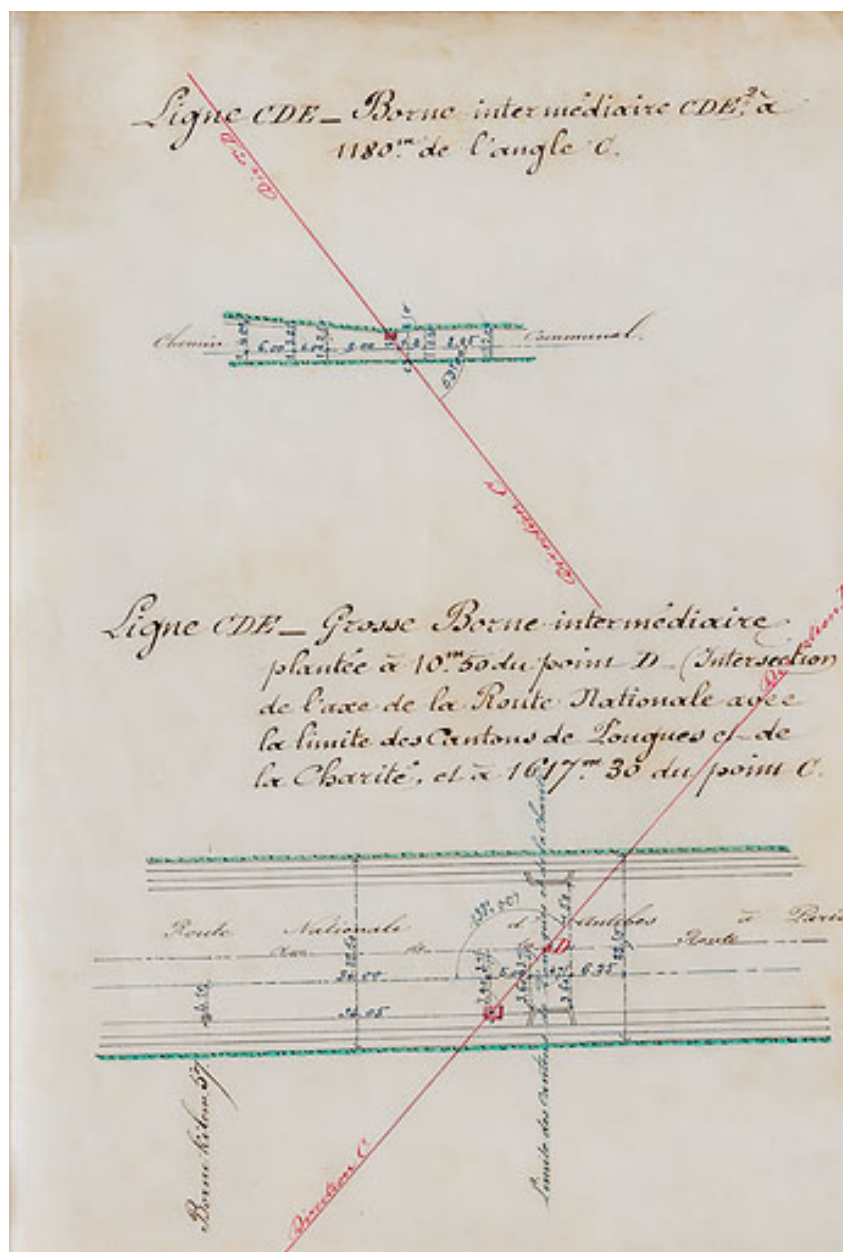 Ligne CDE _ Borne intermédiaire CDE.2 à
1180.m de l'angle C.
Direon D
Chemin Communal.
6.00 4.00 8.00
Direction C
Ligne CDE _ Grosse Borne intermédiaire
plantée à 10.m50 du point D _ (Intersection
de l'axe de la Route Nationale avec
la limite des Cantons de Pougues et de
la Charité, et à 1617.m30 du point C.
Route Nationale d'Antibes à Paris
Axe de Route
D
36.00 6.35
36.05
Borne kilom 57
Limite des Cantons de Pougues et de la Charité
Direction C